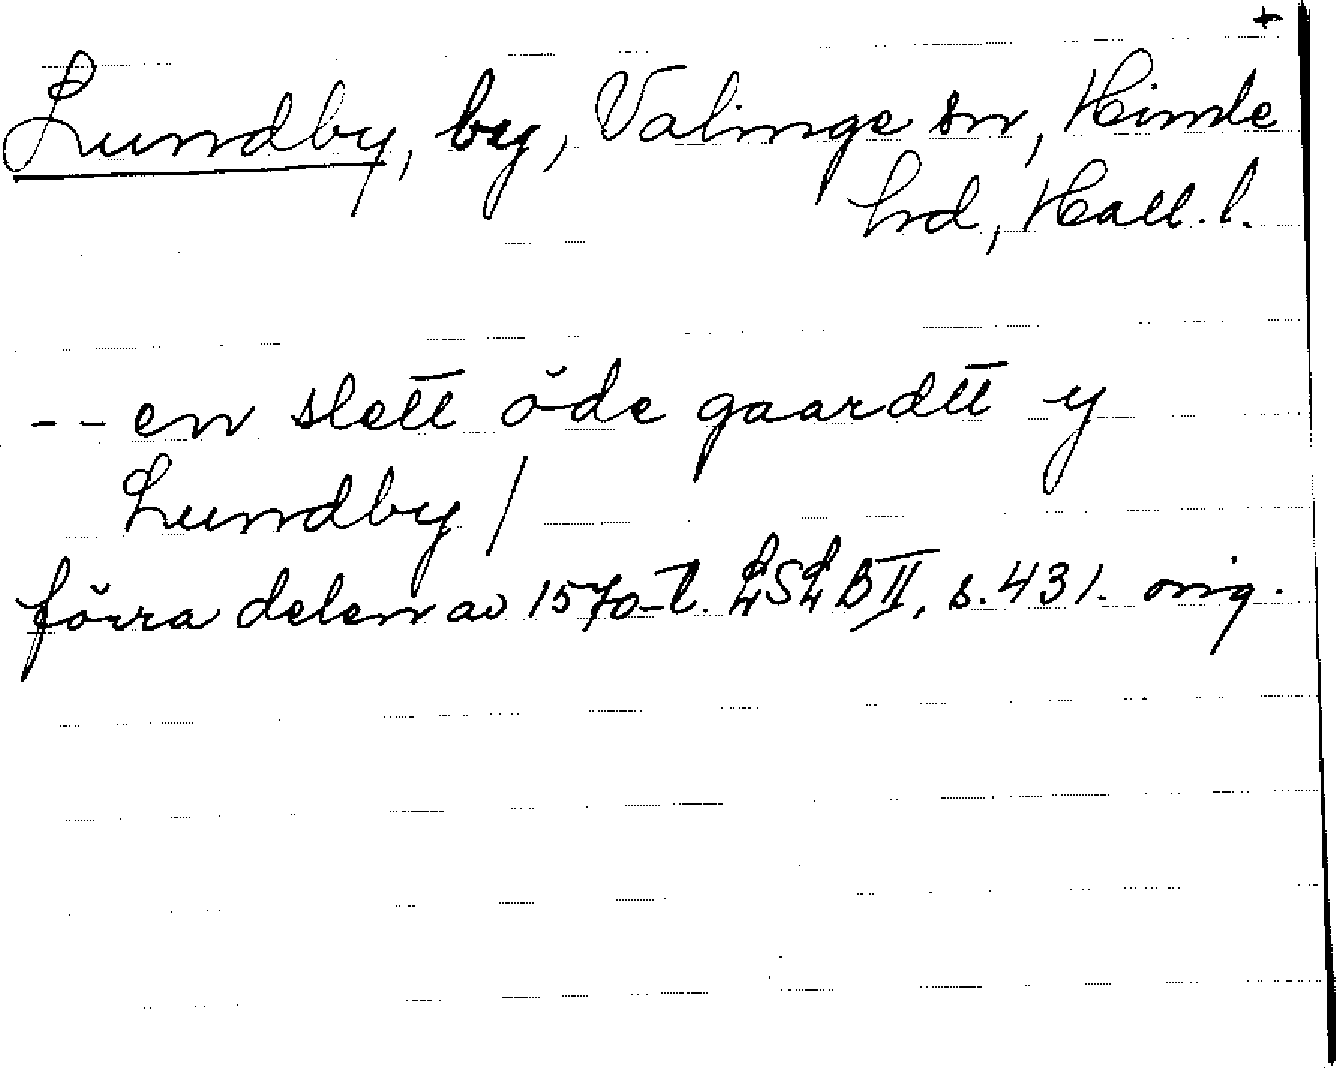 +
Lundby, by, Valinge sn, Himle
hrd, Hall. l.
-- en slett öde gaardtt y
Lundby /
förra delen av 1570-t. LSLB II, s. 431. orig.